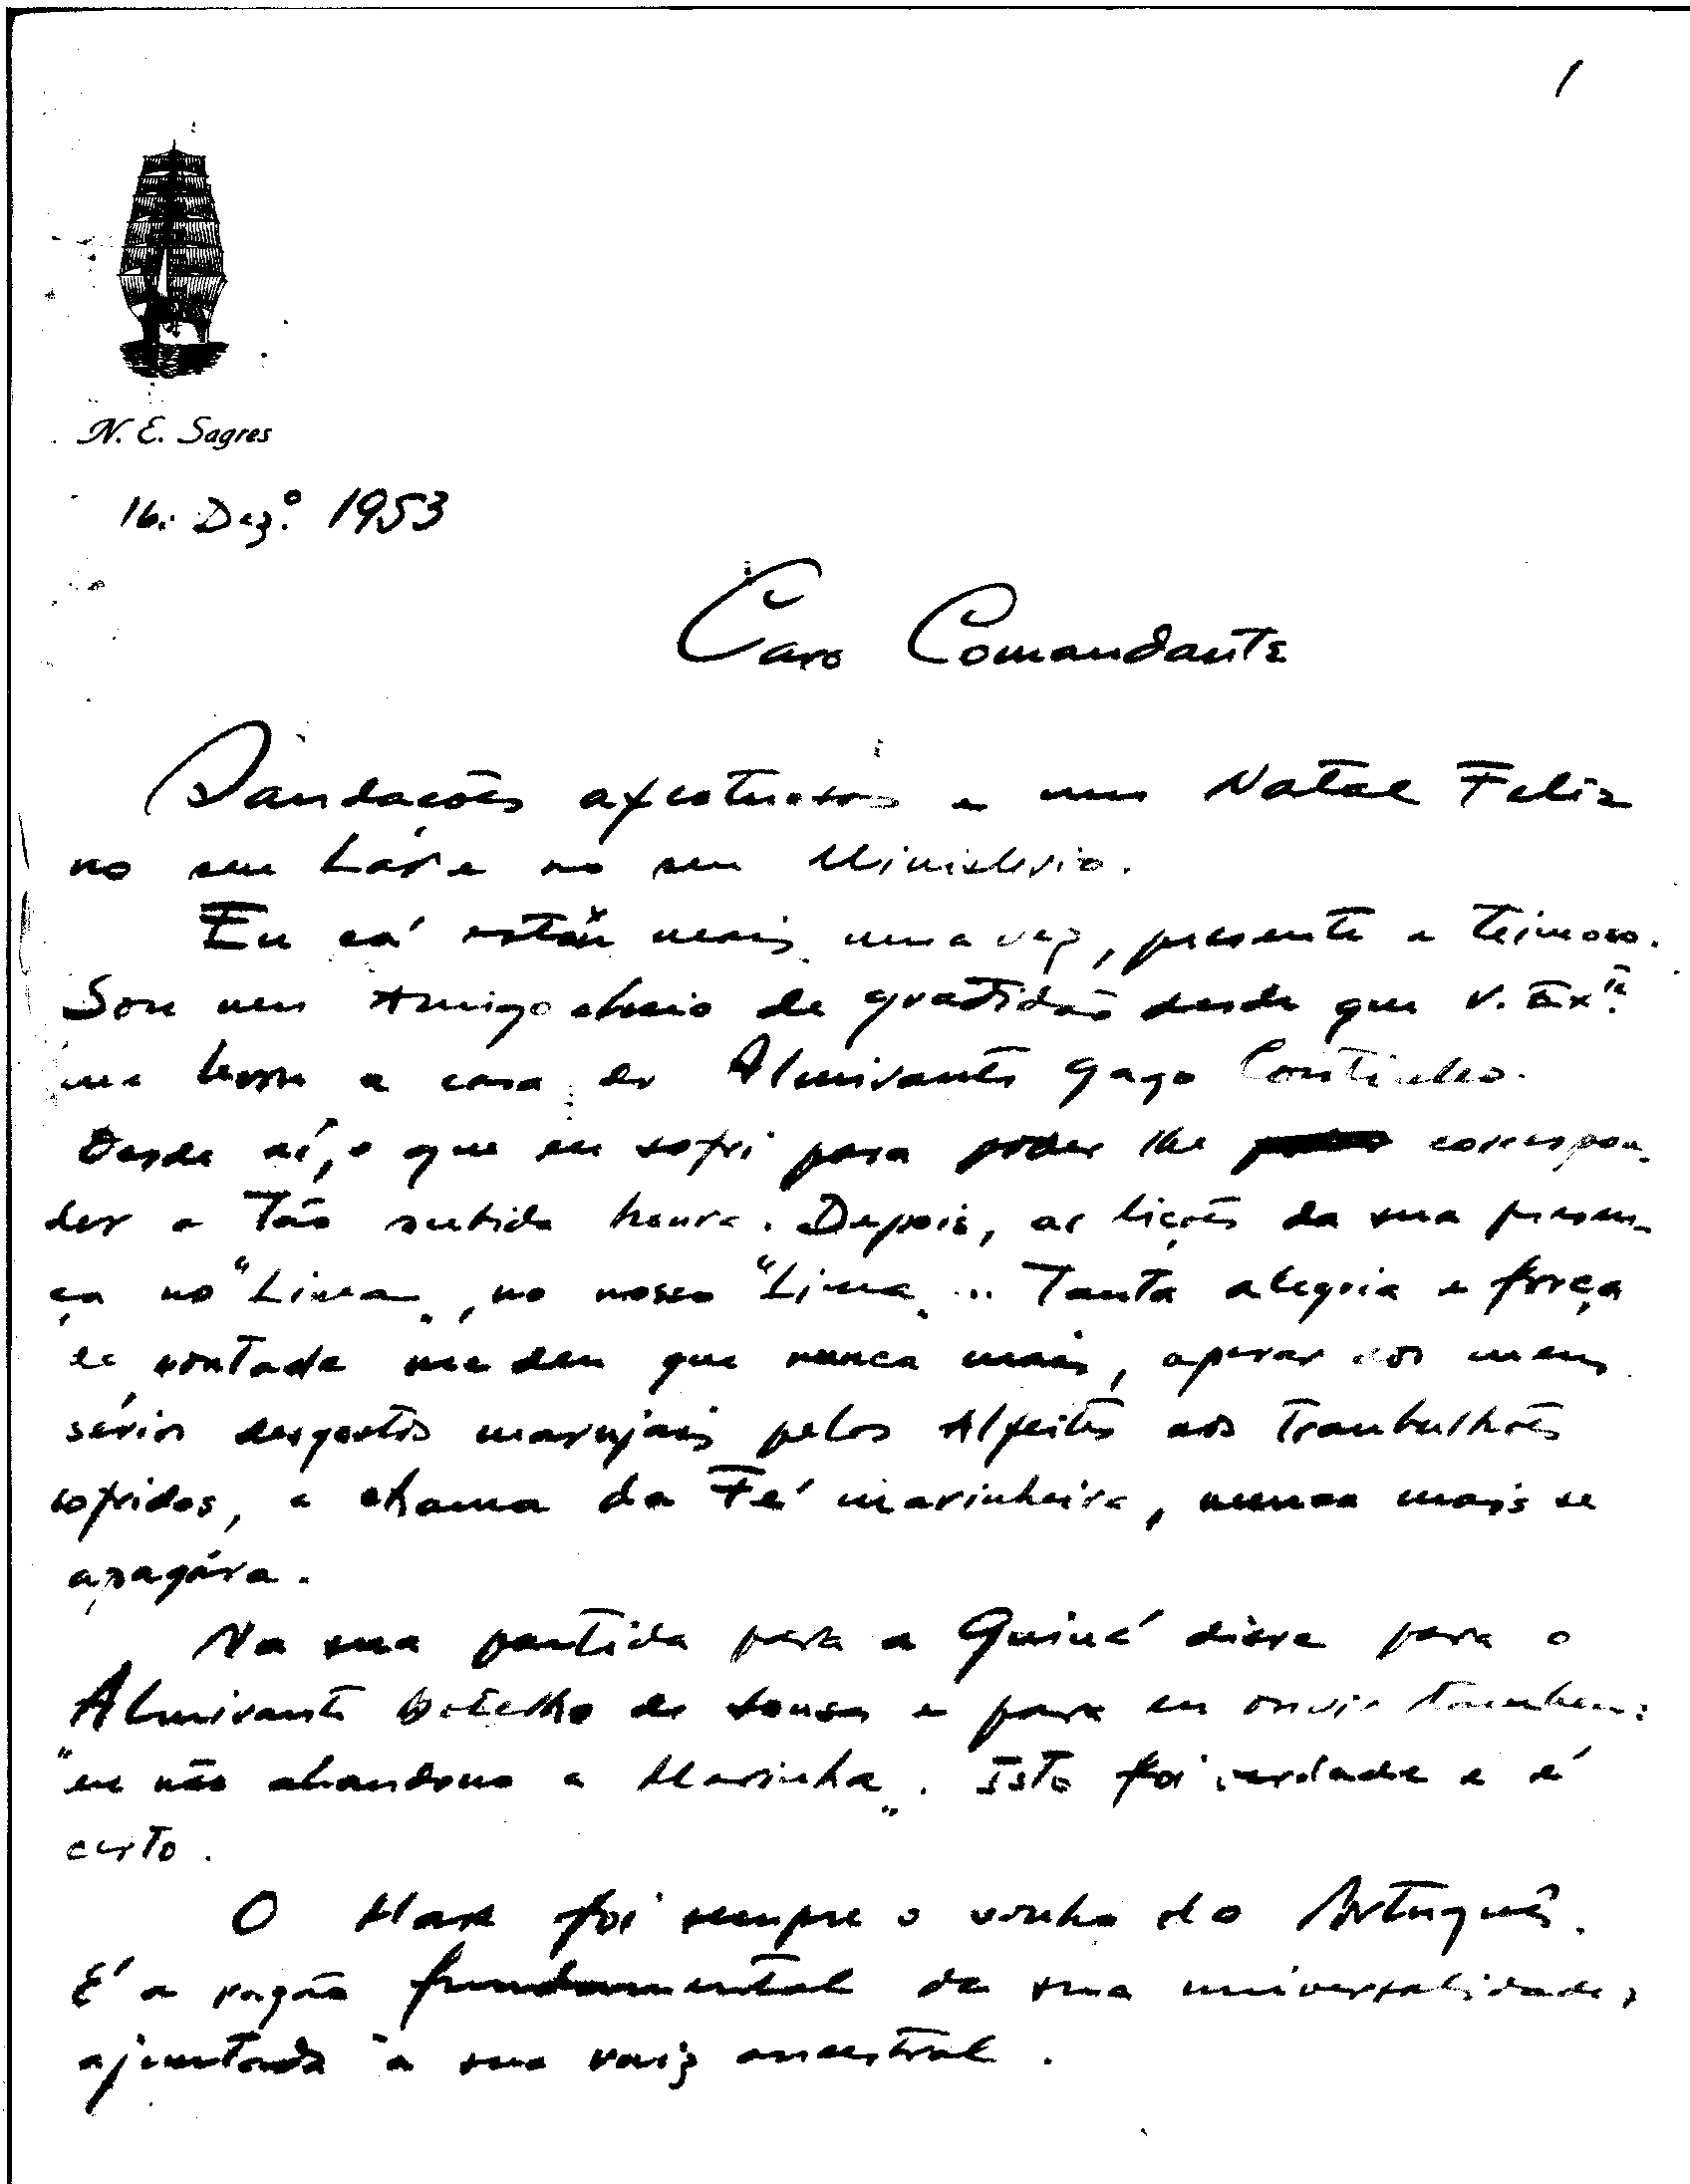 1
N. E. Sagres
16. Dez.º 1953
Caro Comandante
Saudações afectuosas e um Natal Feliz
no seu Lár e no seu Ministério.
Eu cá estou mais uma vez, presente e teimoso.
Sou um Amigo cheio de gratidão desde que V. Exª
me levou a casa do Almirante Gago Coutinho.
Desde aí, o que eu sofri para poder lhe correspon-
der a tão subida honra. Depois, as lições da sua presen-
ça no "Lima", no nosso "Lima"... Tanta alegria e força
de vontade me deu que nunca mais, apesar dos meus
sérios desgostos marujais pelos Alfeites aos trambulhões
sofridos, a chama da Fé marinheira, nunca mais se
apagára.
Na sua partida para a Guiné disse para o
Almirante Botelho de Sousa e para eu ouvir tambem:
"eu não abandono a Marinha". Isto foi verdade e é
certo.
O Mar foi sempre o sonho do Português.
É a razão fundamental da sua universalidade,
ajuntada à sua raiz ancestral.